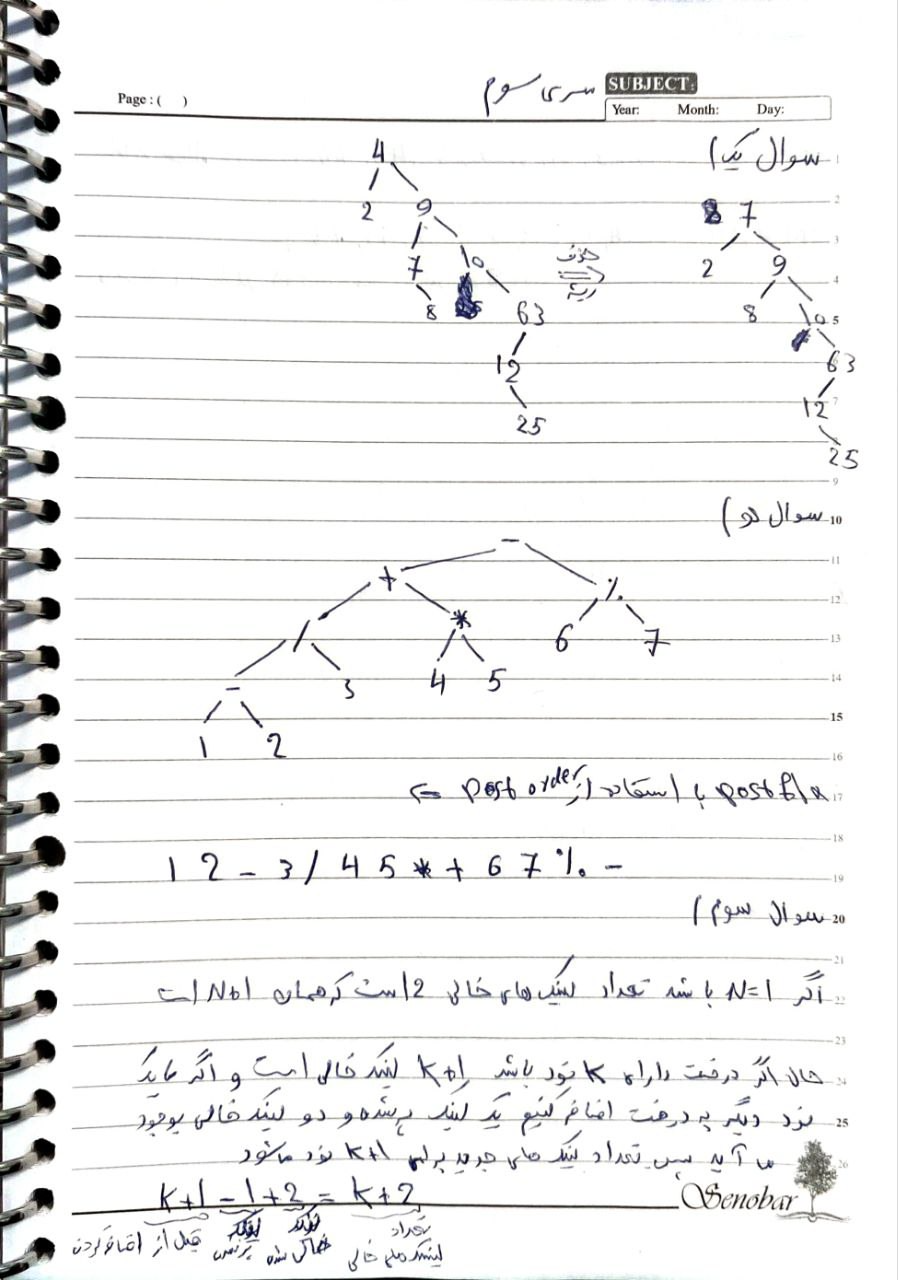 سری سوم
SUBJECT:
Page : ( )
Year: Month: Day:
سوال یک)
4
2 9
7 10
8 63
12
25
حذف
ریشه
7
2 9
8 10
63
12
25
سوال دو)
-
+ %
/ * 6 7
- 3 4 5
1 2
postfix با استفاده از post order ←
1 2 - 3 / 4 5 * + 6 7 % -
سوال سوم)
اگر N=1 باشد تعداد لینک های خالی 2 است که همان N+1 است
حال اگر درخت دارای K نود باشد K+1 لینک خالی است و اگر ما یک
نود دیگر به درخت اضافه کنیم یک لینک پر شده و دو لینک خالی بوجود
می آید پس تعداد لینک های جدید برای K+1 نود می شود
K+1 - 1 + 2 = K+2
قبل از اضافه کردن
لینک پر شده
لینک خالی شده
تعداد
لینک های خالی
Senobar
1
2
3
4
5
7
9
10
11
12
13
14
15
16
17
18
19
20
21
22
23
24
25
26